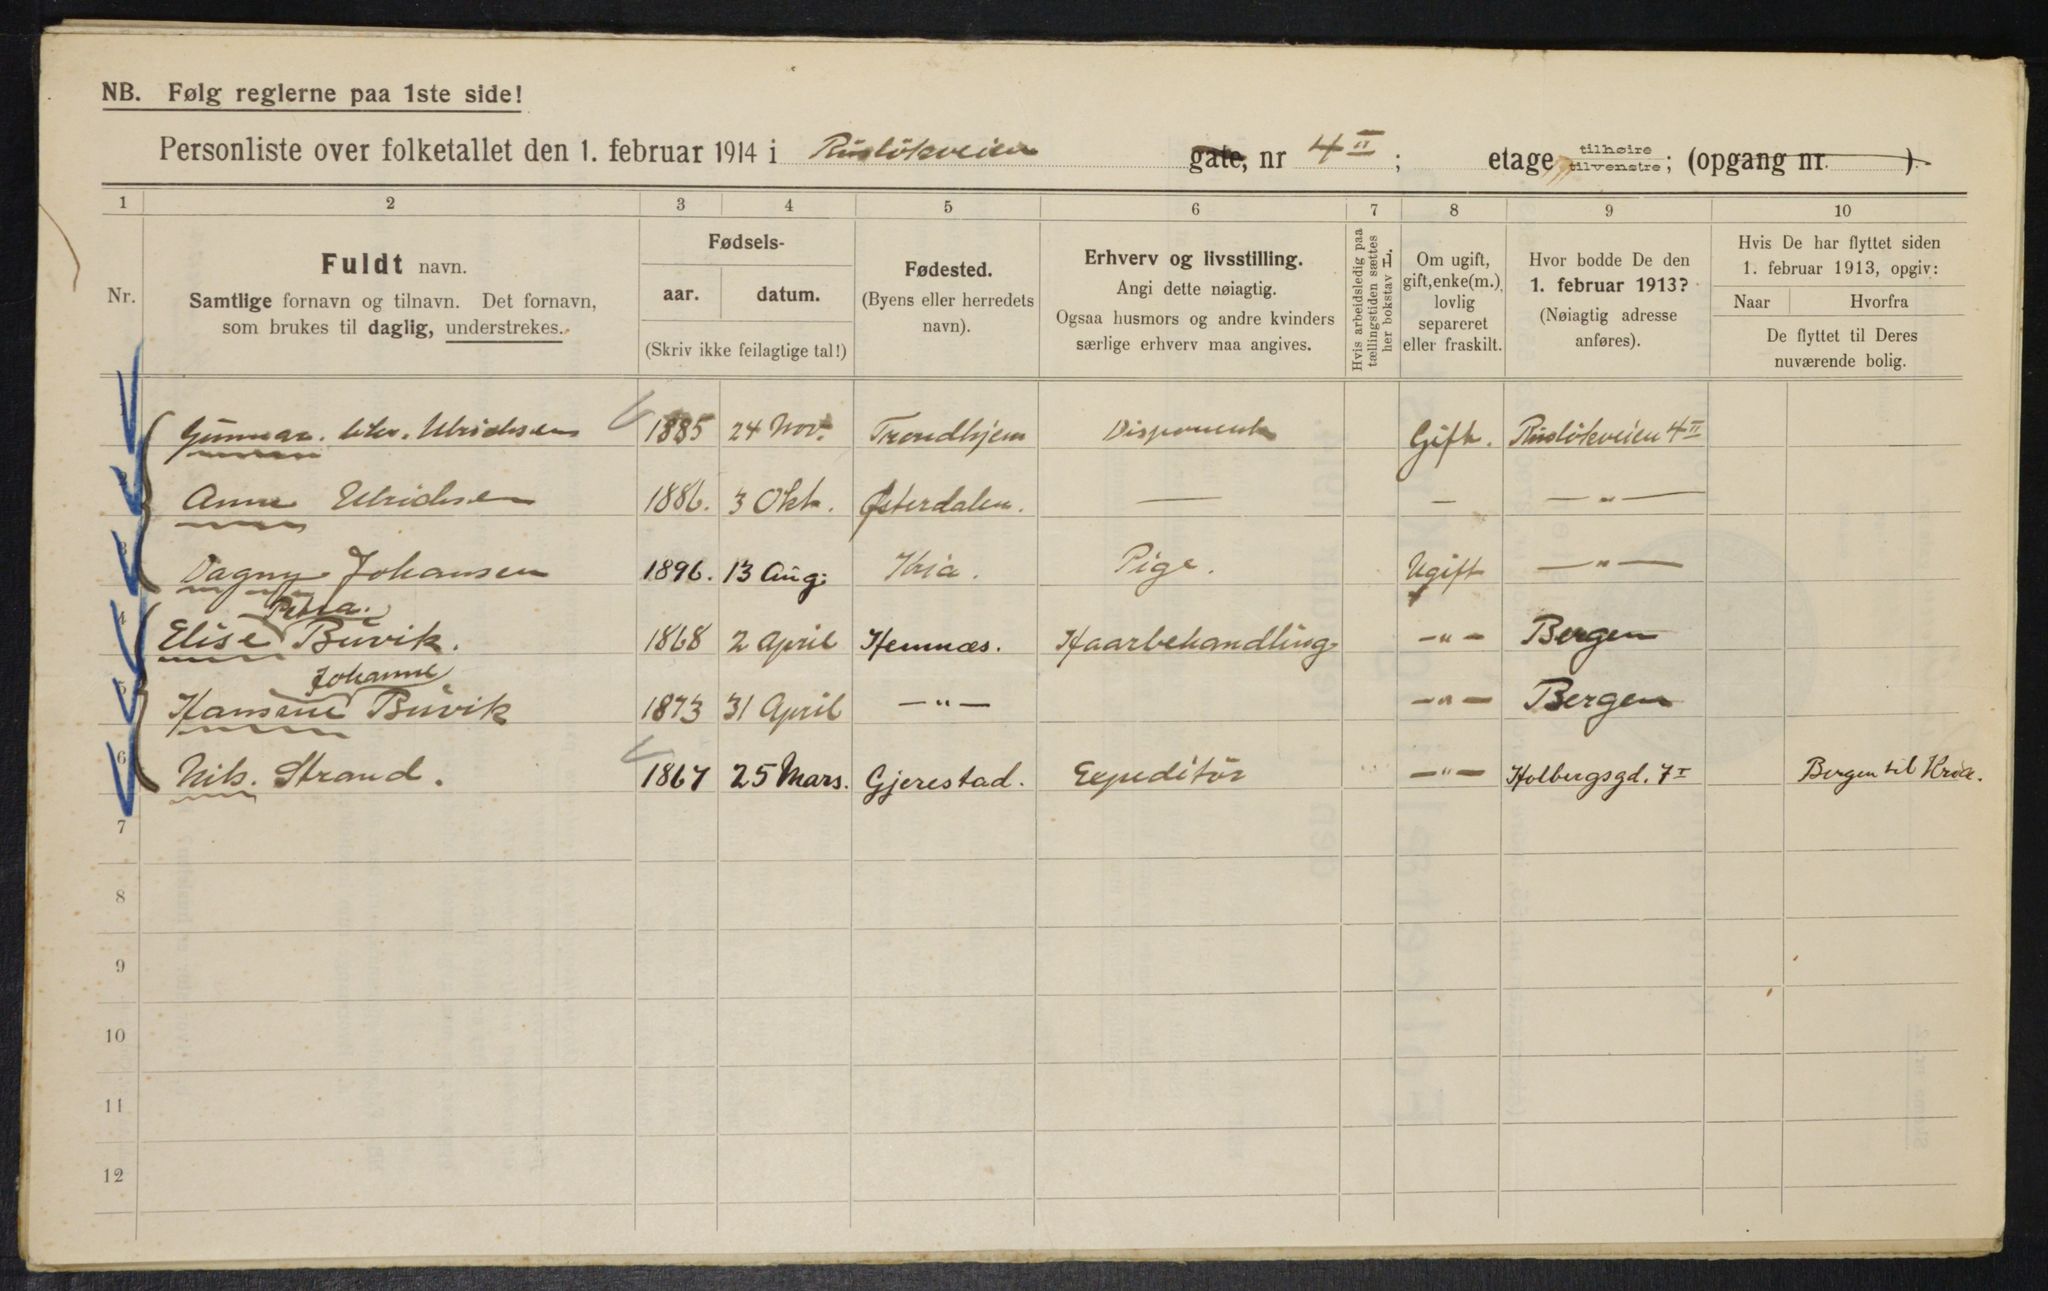 NB. Følg reglerne paa 1ste side!
Personliste over folketallet den 1. februar 1914 i Ruslökveien gate, nr 4 II; etage tilhøire tilvenstre; (opgang nr. )
1 2 3 4 5 6 7 8 9 10
Nr.
Fuldt navn.
Samtlige fornavn og tilnavn. Det fornavn,
som brukes til daglig, understrekes.
Fødsels-
aar. datum.
(Skriv ikke feilagtige tal!)
Fødested.
(Byens eller herredets
navn).
Erhverv og livsstilling.
Angi dette nøiagtig.
Ogsaa husmors og andre kvinders
særlige erhverv maa angives.
Hvis arbeidsledig paa
tællingstiden sættes
her bokstav L.
Om ugift,
gift, enke(m.),
lovlig
separeret
eller fraskilt.
Hvor bodde De den
1. februar 1913?
(Nøiagtig adresse
anføres).
Hvis De har flyttet siden
1. februar 1913, opgiv:
Naar Hvorfra
De flyttet til Deres
nuværende bolig.
Gunnar. Ulrichsen 1885 24 Nov. Trondhjem Disponent Gift. Ruslökveien 4 II
2 Anne Ulrichsen 1886. 3 Okt. Østerdalen. — — — „ —
3 Dagny Johansen 1896. 13 Aug: Kria. Pige. Ugift — „ —
4 Elise Petra. Buvik. 1868 2 April Hemnæs. Haarbehandling — „ — Bergen
5 Hansine Johanne Buvik 1873 31 April — „ — — „ — Bergen
6 Nils. Strand. 1867 25 Mars. Gjerestad. Expeditör — „ — Holbergsgd. 7 I Bergen til Kria.
7
8
9
10
11
12